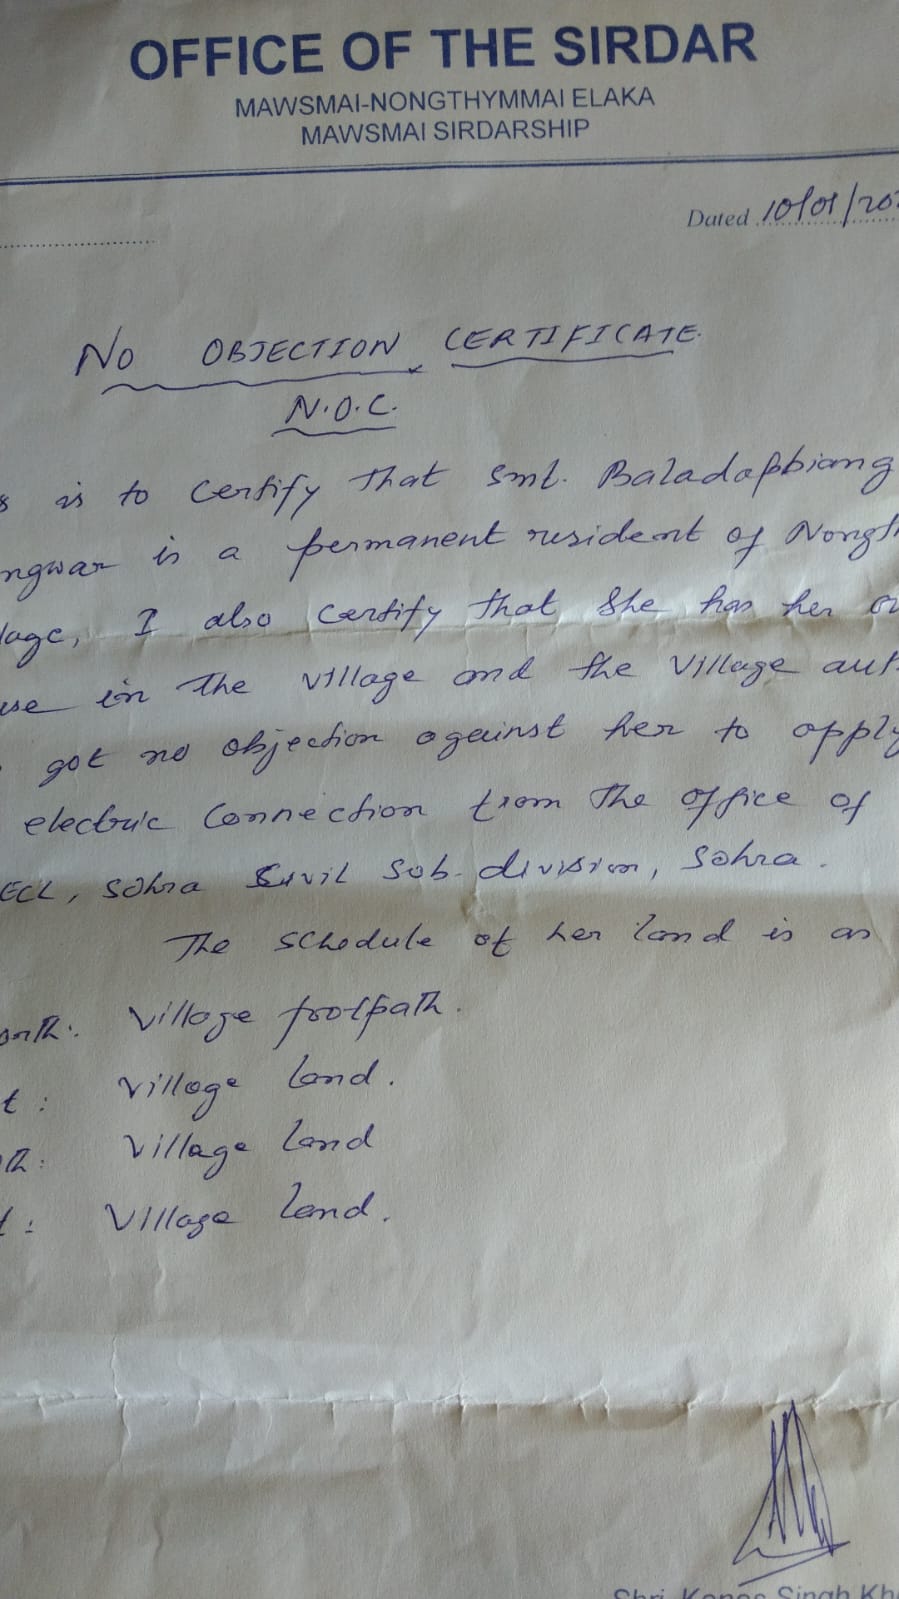 OFFICE OF THE SIRDAR
MAWSMAI-NONGTHYMMAI ELAKA
MAWSMAI SIRDARSHIP
Dated 10/01/20
No OBJECTION CERTIFICATE.
N.O.C.
s is to certify that Smt. Baladapbiang
ngwar is a permanent resident of Nongth
lage, I also certify that She has her ow
use in the village and the village aut
got no objection against her to apply
electric Connection from the office of
ECL, Sohra Civil Sub-division, Sohra.
The schedule of her land is as
orth: Village footpath.
t: Village land.
th: Village land
t: Village land.
Singh Kh